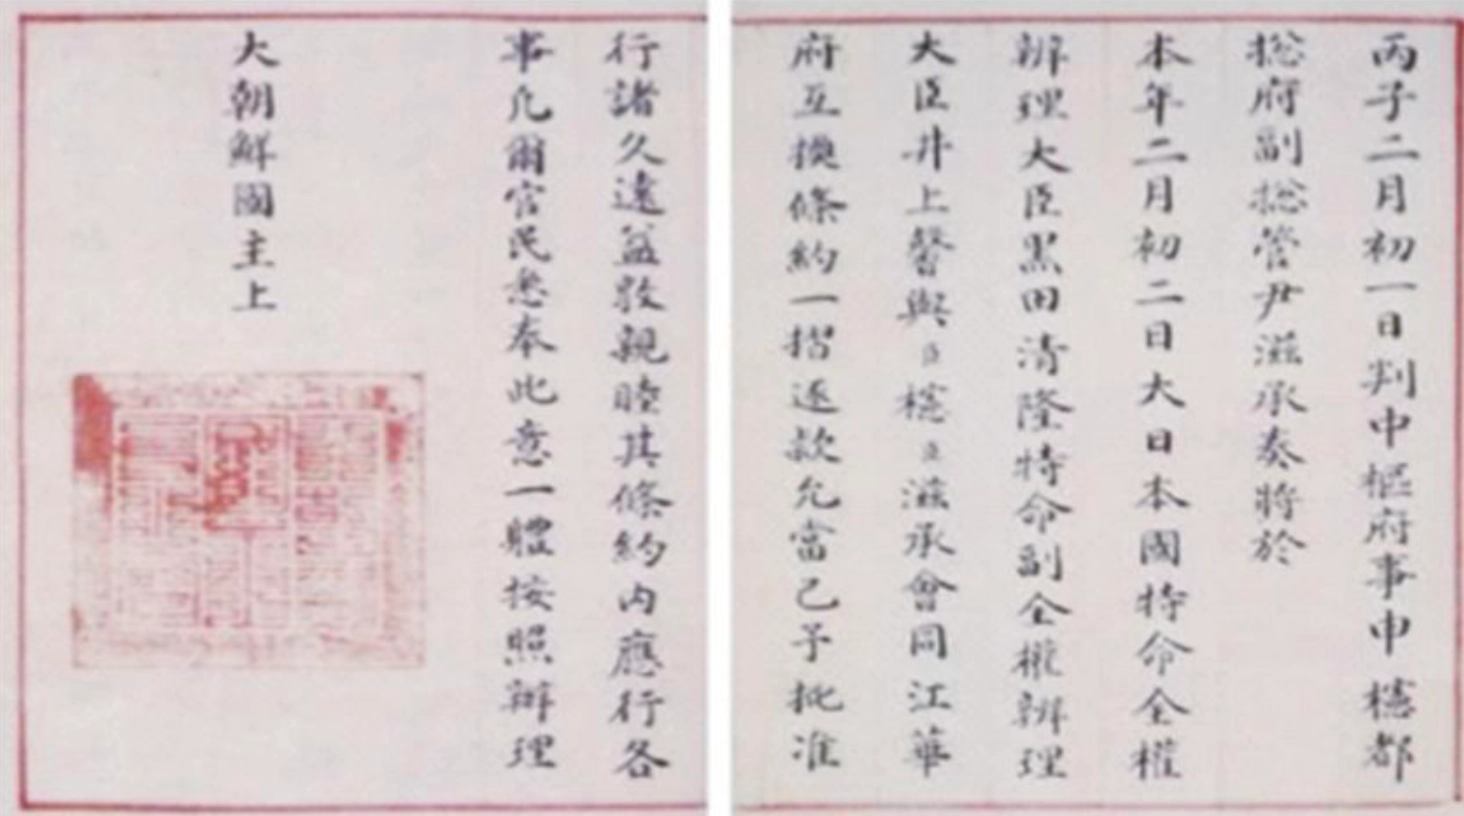 丙子二月初一日判中樞府事申櫶都
捴府副捴管尹滋承奏將於
本年二月初二日大日本國特命全權
辦理大臣黑田清隆特命副全權辦理
大臣井上馨與臣櫶臣滋承會同江華
府互換條約一摺逐款允當已予批准
行諸久遠益敦親睦其條約內應行各
事凡爾官民悉奉此意一體按照辦理
大朝鮮國主上